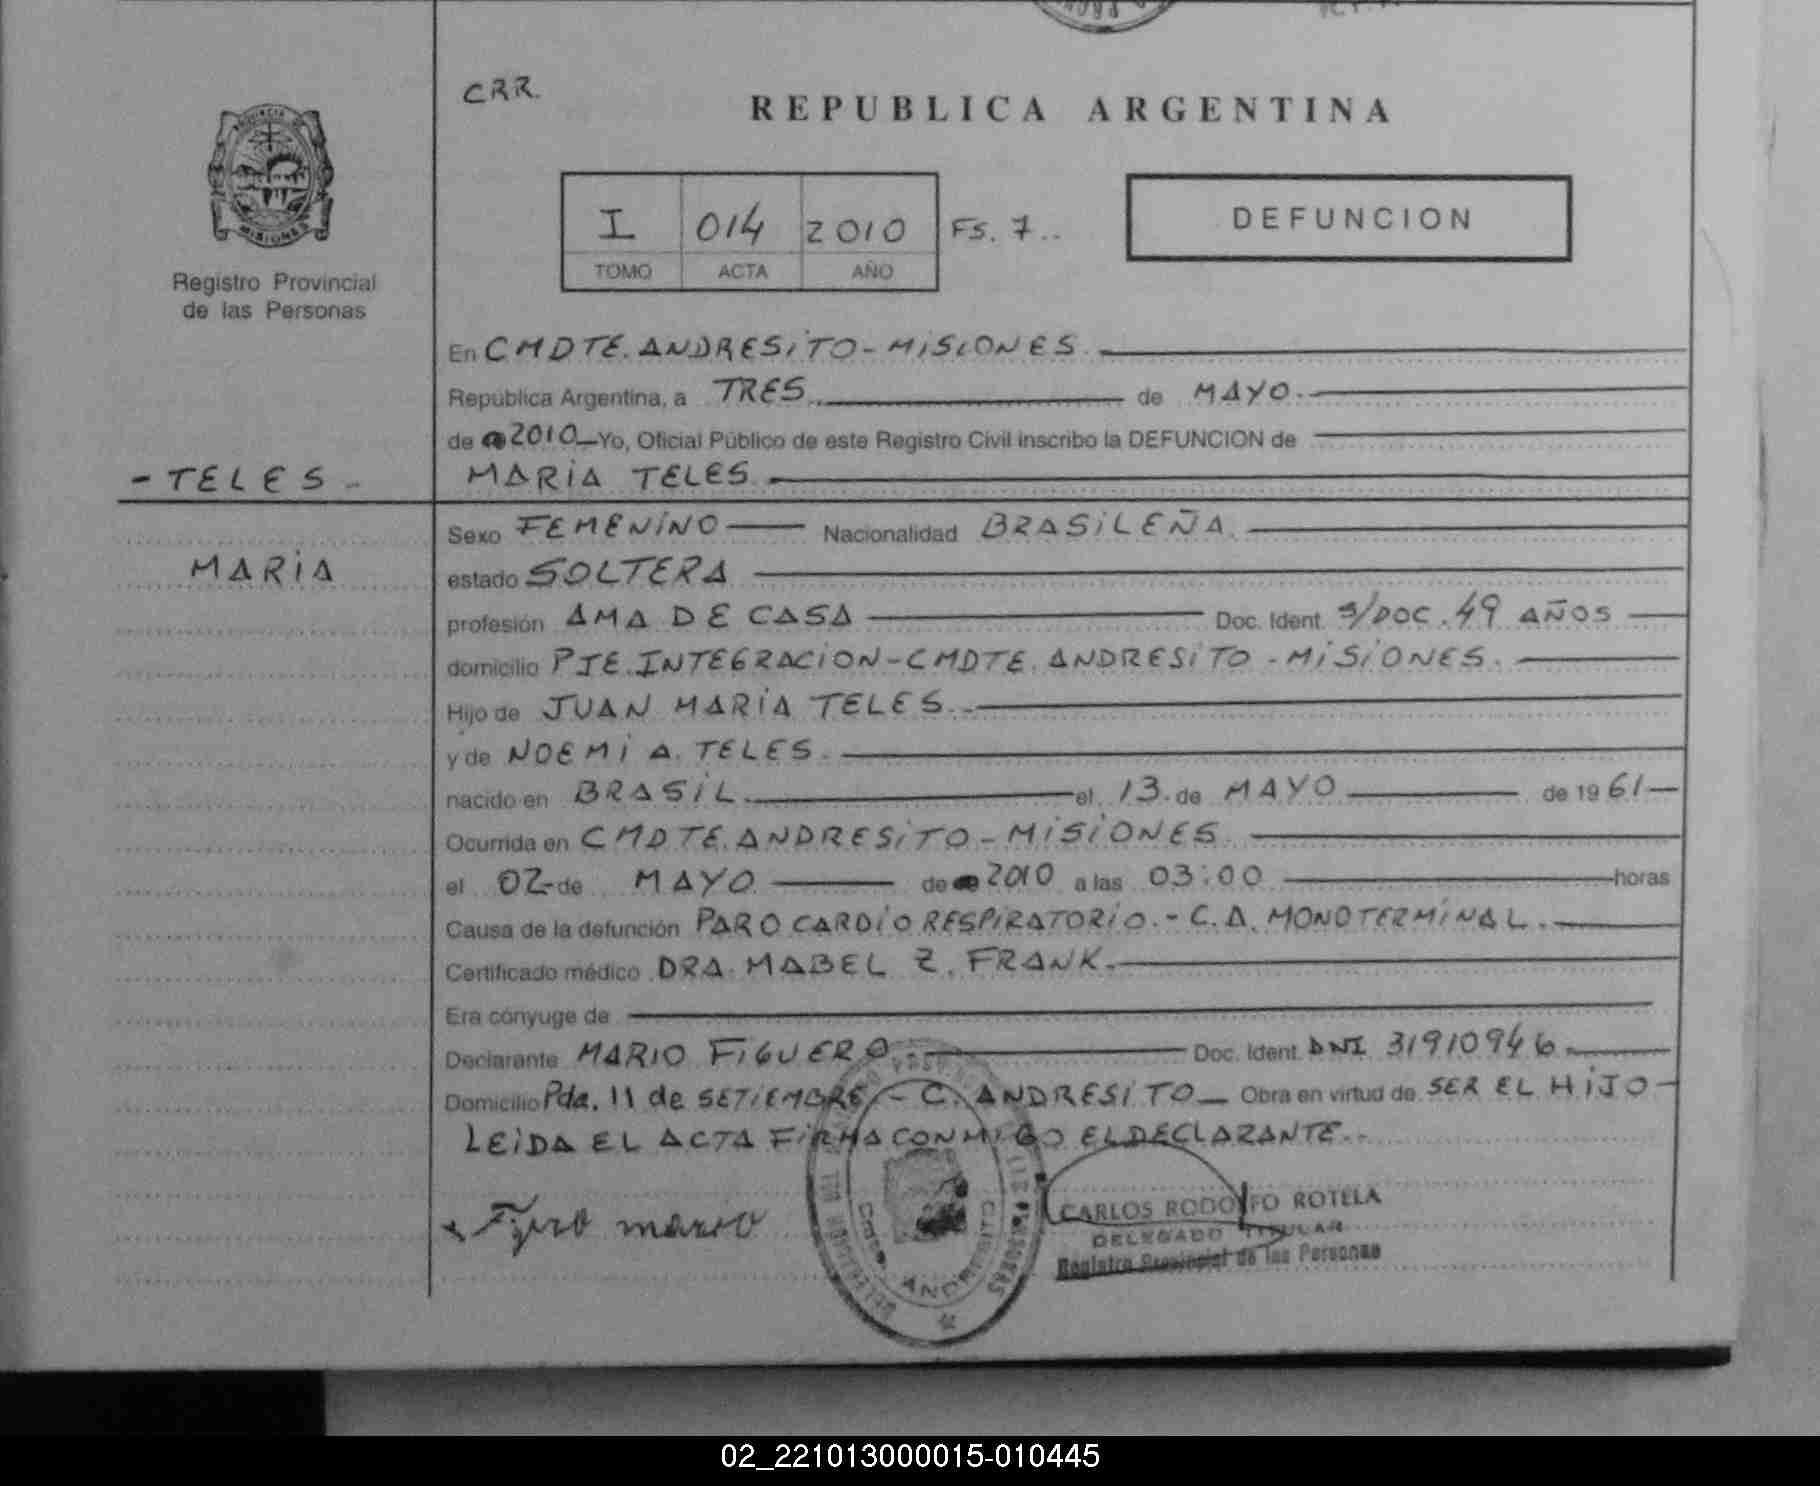 CRR.
REPUBLICA ARGENTINA
PROVINCIA DE
MISIONES
Registro Provincial
de las Personas
I 014 2010 FS. 7..
TOMO ACTA AÑO
DEFUNCION
En CMDTE. ANDRESITO - MISIONES
República Argentina, a TRES de MAYO.
de 2010 Yo, Oficial Público de este Registro Civil inscribo la DEFUNCION de
- TELES - MARIA TELES
Sexo FEMENINO Nacionalidad BRASILEÑA.
MARIA
estado SOLTERA
profesión AMA DE CASA Doc. Ident. S/DOC. 49 AÑOS
domicilio PJE. INTEGRACION - CMDTE. ANDRESITO - MISIONES.
Hijo de JUAN MARIA TELES.
y de NOEMI A. TELES.
nacido en BRASIL. el 13. de MAYO de 19 61
Ocurrida en CMDTE. ANDRESITO - MISIONES.
el 02 de MAYO de 2010 a las 03:00 horas
Causa de la defunción PARO CARDIO RESPIRATORIO. - C.A. MONOTERMINAL.
Certificado médico DRA. MABEL Z. FRANK.
Era cónyuge de
Declarante MARIO FIGUERO. Doc. Ident. DNI 31910946
Domicilio Pda. 11 de SETIEMBRE - C. ANDRESITO Obra en virtud de SER EL HIJO
LEIDA EL ACTA FIRMA CONMIGO EL DECLARANTE.
mario
CARLOS RODOLFO ROTELA
DELEGADO TITULAR
Registro Provincial de las Personas
02_221013000015-010445